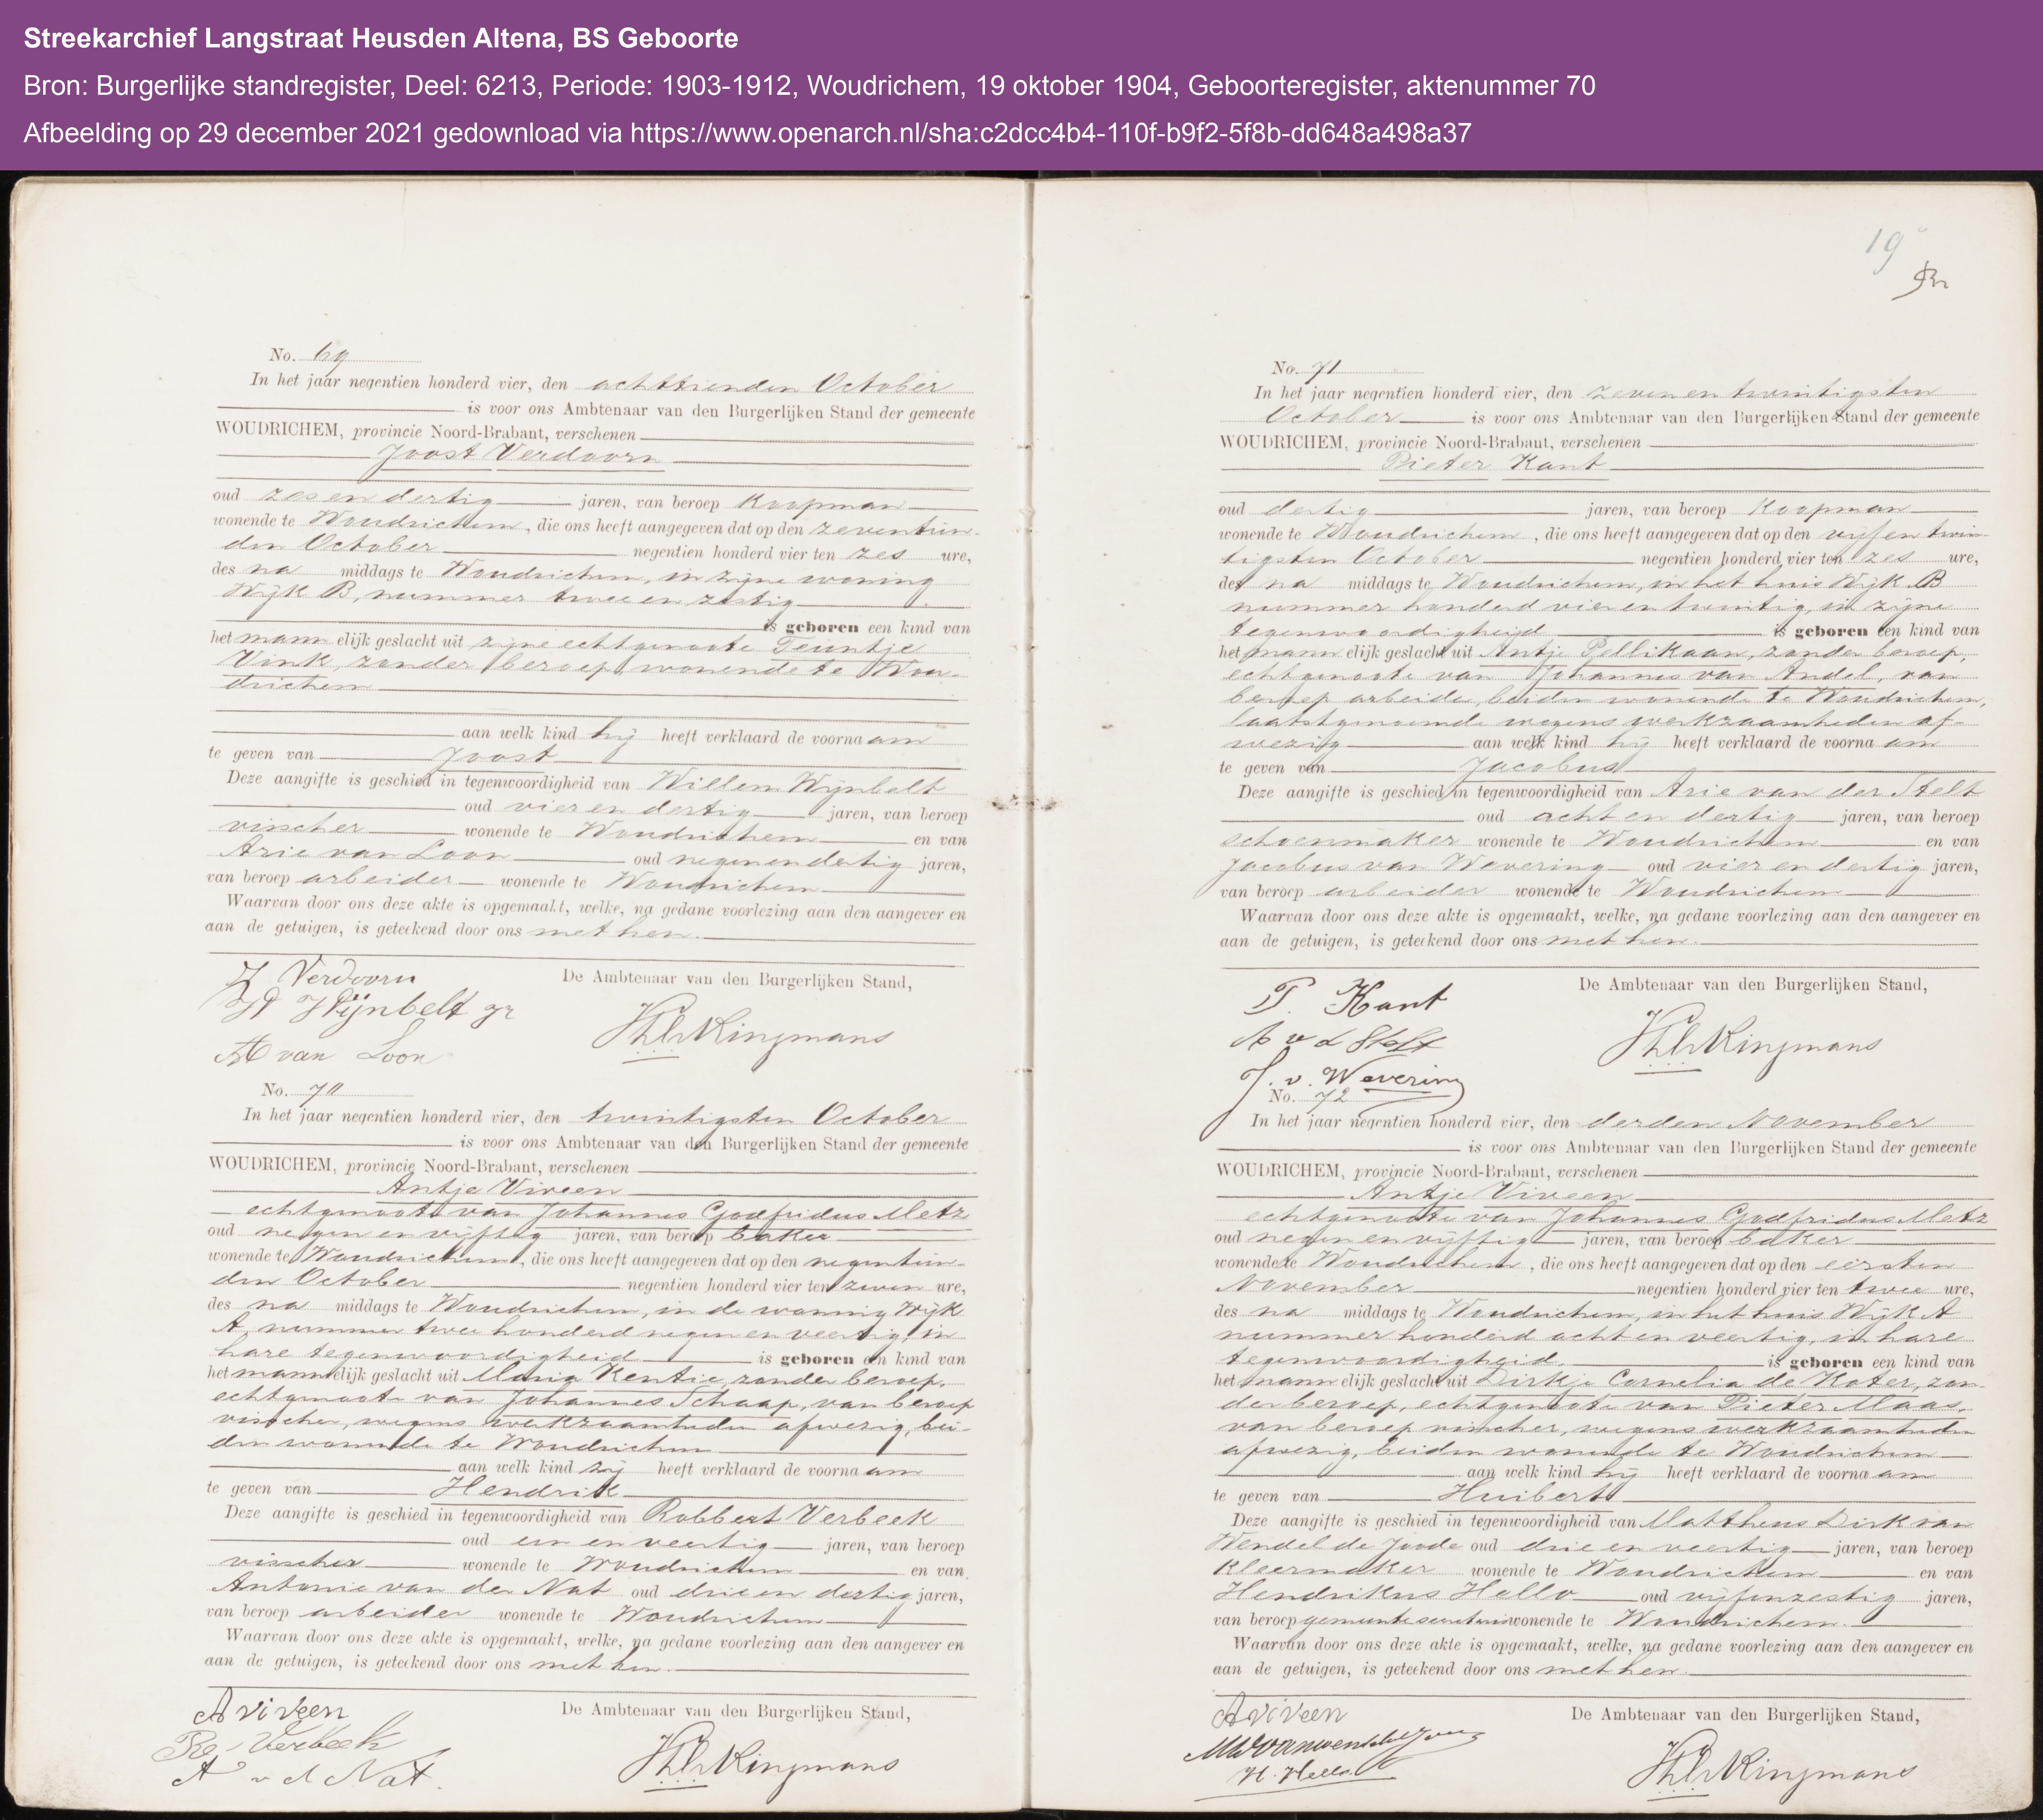 Streekarchief Langstraat Heusden Altena, BS Geboorte
Bron: Burgerlijke standregister, Deel: 6213, Periode: 1903-1912, Woudrichem, 19 oktober 1904, Geboorteregister, aktenummer 70
Afbeelding op 29 december 2021 gedownload via https://www.openarch.nl/sha:c2dcc4b4-110f-b9f2-5f8b-dd648a498a37
No. 69
In het jaar negentien honderd vier, den achttienden October
is voor ons Ambtenaar van den Burgerlijken Stand der gemeente
WOUDRICHEM, provincie Noord-Brabant, verschenen
Joost Verdoorn
oud zes en dertig jaren, van beroep Koopman
wonende te Woudrichem, die ons heeft aangegeven dat op den zeventien-
den October negentien honderd vier ten zes ure,
des na middags te Woudrichem, in zijne woning
Wijk B, nummer twee en zestig
is geboren een kind van
het mannelijk geslacht uit zijne echtgenoote Teuntje
Vink, zonder beroep, wonende te Wou-
drichem
aan welk kind hij heeft verklaard de voornaam
te geven van Joost
Deze aangifte is geschied in tegenwoordigheid van Willem Wijnbelt
oud vier en dertig jaren, van beroep
visscher wonende te Woudrichem en van
Arie van Loon oud negen en dertig jaren,
van beroep arbeider wonende te Woudrichem
Waarvan door ons deze akte is opgemaakt, welke, na gedane voorlezing aan den aangever en
aan de getuigen, is geteekend door ons met hen.
De Ambtenaar van den Burgerlijken Stand,
J Verdoorn
W Wijnbelt jr
A van Loon
Kingmans
No. 70
In het jaar negentien honderd vier, den twintigsten October
is voor ons Ambtenaar van den Burgerlijken Stand der gemeente
WOUDRICHEM, provincie Noord-Brabant, verschenen
Antje Viveen
echtgenoote van Johannes Godfridus Metz
oud negen en vijftig jaren, van beroep baker
wonende te Woudrichem, die ons heeft aangegeven dat op den negentien-
den October negentien honderd vier ten zeven ure,
des na middags te Woudrichem, in de woning Wijk
A, nummer twee honderd negen en veertig, in
hare tegenwoordigheid is geboren een kind van
het mannelijk geslacht uit Maria Kentie, zonder beroep,
echtgenoote van Johannes Schaap, van beroep
visscher, wegens werkzaamheden afwezig, bei-
den wonende te Woudrichem
aan welk kind zij heeft verklaard de voornaam
te geven van Hendrik
Deze aangifte is geschied in tegenwoordigheid van Robbert Verbeek
oud een en veertig jaren, van beroep
visscher wonende te Woudrichem en van
Antonie van der Nat oud drie en dertig jaren,
van beroep arbeider wonende te Woudrichem
Waarvan door ons deze akte is opgemaakt, welke, na gedane voorlezing aan den aangever en
aan de getuigen, is geteekend door ons met hen.
De Ambtenaar van den Burgerlijken Stand,
A Viveen
Verbeek
A v d Nat.
Kingmans
19
No. 71
In het jaar negentien honderd vier, den zeven en twintigsten
October is voor ons Ambtenaar van den Burgerlijken Stand der gemeente
WOUDRICHEM, provincie Noord-Brabant, verschenen
Pieter Kant
oud dertig jaren, van beroep Koopman
wonende te Woudrichem, die ons heeft aangegeven dat op den vijf en twin-
tigsten October negentien honderd vier ten zes ure,
des na middags te Woudrichem, in het huis Wijk B
nummer honderd vier en twintig, in zijne
tegenwoordigheid is geboren een kind van
het mannelijk geslacht uit Antje Pellikaan, zonder beroep,
echtgenoote van Johannes van Andel, van
beroep arbeider, beiden wonende te Woudrichem,
laatstgenoemde wegens werkzaamheden af-
wezig aan welk kind hij heeft verklaard de voornaam
te geven van Jacobus
Deze aangifte is geschied in tegenwoordigheid van Arie van der Stelt
oud acht en dertig jaren, van beroep
schoenmaker wonende te Woudrichem en van
Jacobus van Wevering oud vier en dertig jaren,
van beroep arbeider wonende te Woudrichem
Waarvan door ons deze akte is opgemaakt, welke, na gedane voorlezing aan den aangever en
aan de getuigen, is geteekend door ons met hen.
De Ambtenaar van den Burgerlijken Stand,
P. Kant
A v d Stelt
J. v. Wevering
Kingmans
No. 72
In het jaar negentien honderd vier, den derden November
is voor ons Ambtenaar van den Burgerlijken Stand der gemeente
WOUDRICHEM, provincie Noord-Brabant, verschenen
Antje Viveen
echtgenoote van Johannes Godfridus Metz
oud negen en vijftig jaren, van beroep baker
wonende te Woudrichem, die ons heeft aangegeven dat op den eersten
November negentien honderd vier ten twee ure,
des na middags te Woudrichem, in het huis Wijk A
nummer honderd acht en veertig, in hare
tegenwoordigheid, is geboren een kind van
het mannelijk geslacht uit Dirkje Cornelia de Kater, zon-
der beroep, echtgenoote van Pieter Maas,
van beroep visscher, wegens werkzaamheden
afwezig, beiden wonende te Woudrichem
aan welk kind hij heeft verklaard de voornaam
te geven van Huibert
Deze aangifte is geschied in tegenwoordigheid van Mattheus Dirk van
Wendel de Joode oud drie en veertig jaren, van beroep
Kleermaker wonende te Woudrichem en van
Hendrikus Hello oud vijf en zestig jaren,
van beroep gemeente secretaris wonende te Woudrichem.
Waarvan door ons deze akte is opgemaakt, welke, na gedane voorlezing aan den aangever en
aan de getuigen, is geteekend door ons met hen.
De Ambtenaar van den Burgerlijken Stand,
A Viveen
H. Hello
Kingmans